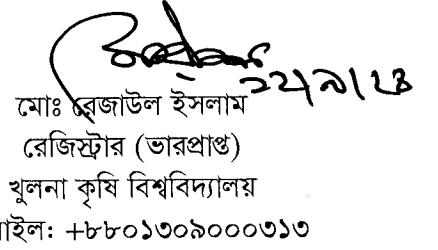 ২২/৯/২৪
মোঃ রেজাউল ইসলাম
রেজিস্ট্রার (ভারপ্রাপ্ত)
খুলনা কৃষি বিশ্ববিদ্যালয়
াইল: +৮৮০১৩০৯০০০৩১৩